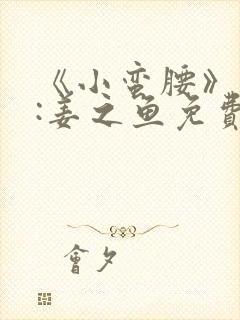 《小蛮腰》
:姜之鱼免費
會夕